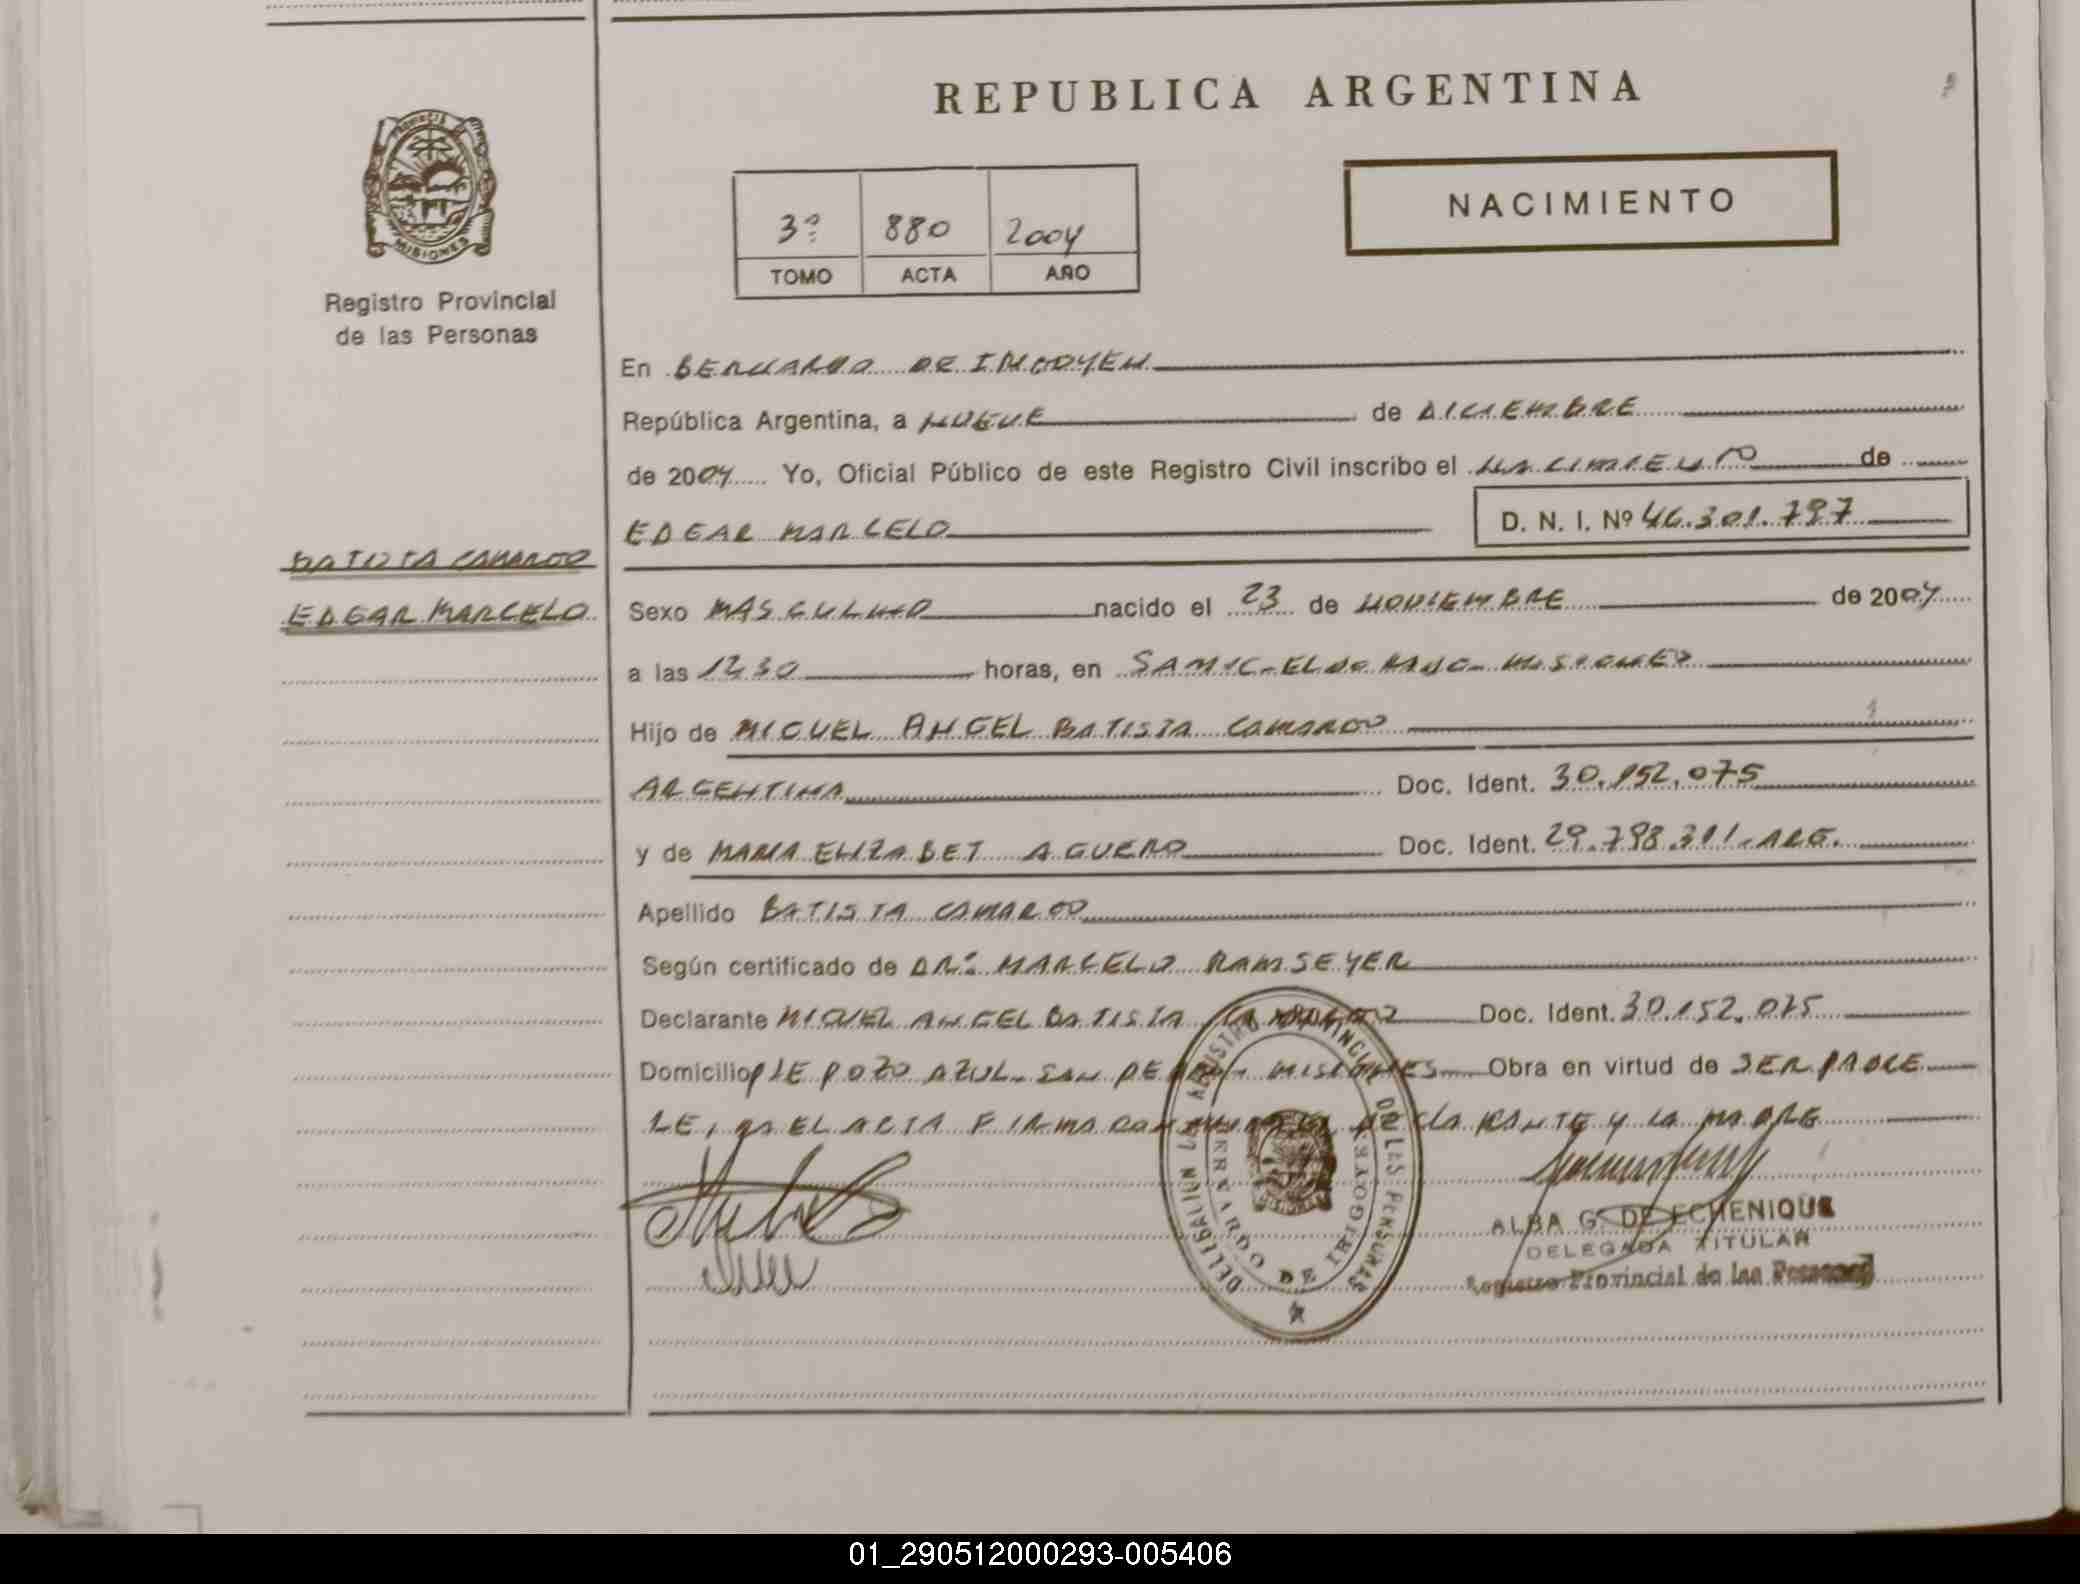 REPUBLICA ARGENTINA
PROVINCIA
MISIONES
Registro Provincial
de las Personas
3º 880 2004
TOMO ACTA AÑO
NACIMIENTO
En BERNARDO DE IRIGOYEN
República Argentina, a NUEVE de DICIEMBRE
de 2004 Yo, Oficial Público de este Registro Civil inscribo el NACIMIENTO de
EDGAR MARCELO D. N. I. Nº 46.301.797
BATISTA CAMARGO
EDGAR MARCELO
Sexo MASCULINO nacido el 23 de NOVIEMBRE de 2004
a las 1230 horas, en SAMIC-ELDORADO-MISIONES
Hijo de MIGUEL ANGEL BATISTA CAMARGO
ARGENTINA Doc. Ident. 30.152.075
y de MARIA ELIZABET AGUERO Doc. Ident. 29.798.301-ARG.
Apellido BATISTA CAMARGO
Según certificado de DR: MARCELO RAMSEYER
Declarante MIGUEL ANGEL BATISTA CAMARGO Doc. Ident. 30.152.075
Domicilio PJE POZO AZUL-SAN PEDRO-MISIONES Obra en virtud de SER PADRE
LEIDA EL ACTA FIRMAN CONMIGO EL DECLARANTE Y LA MADRE
DELEGACION REGISTRO PROVINCIAL DE LAS PERSONAS
BERNARDO DE IRIGOYEN
ALBA G. DE ECHENIQUE
DELEGADA TITULAR
Registro Provincial de las Personas
01_290512000293-005406